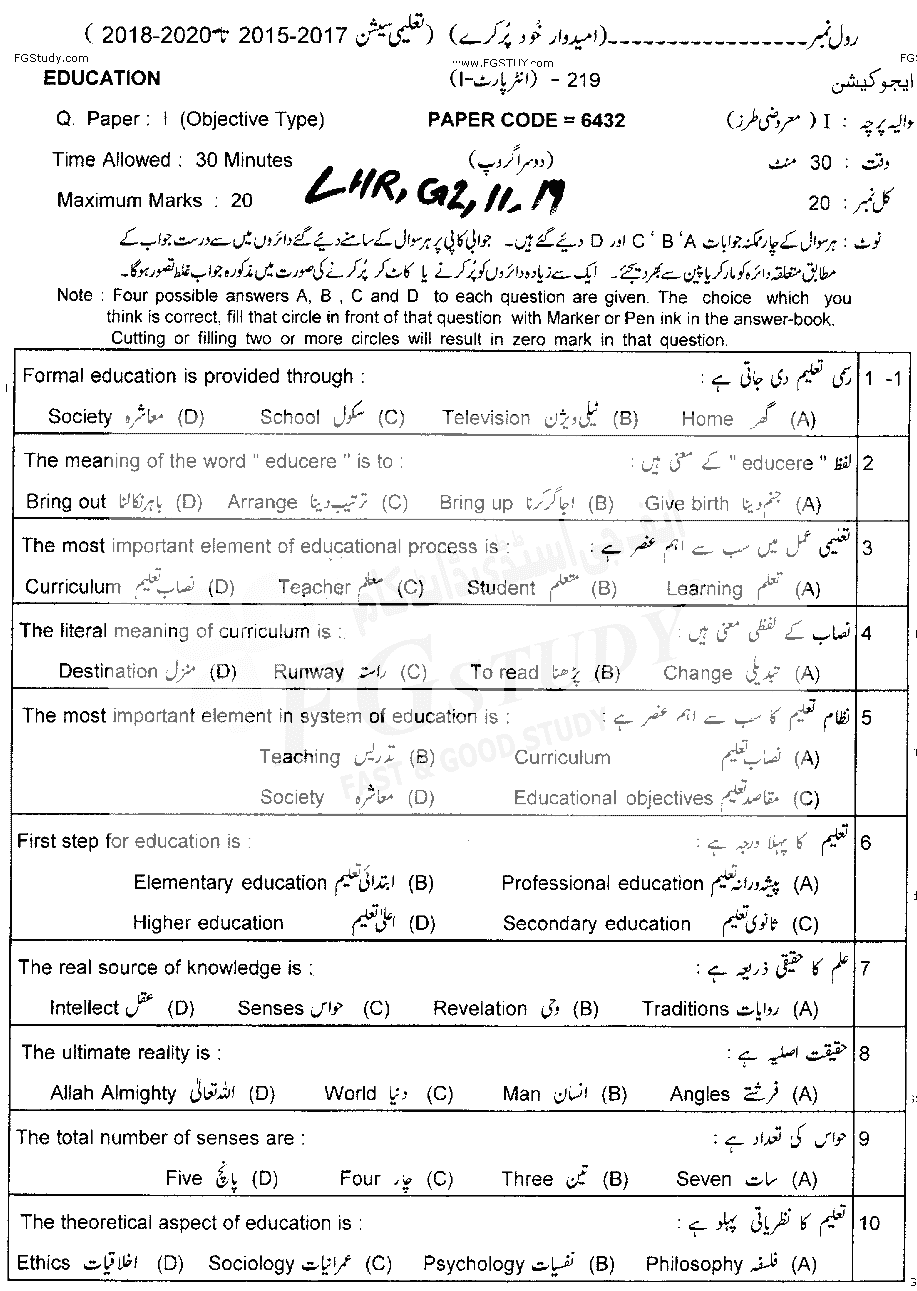 رول نمبر ------------------ (امیدوار خود پُر کرے) (تعلیمی سیشن 2017-2015 تا 2020-2018)
FGStudy.com www.FGSTUDY.com FGS
EDUCATION (انٹر پارٹ-I) - 219 ایجوکیشن
Q. Paper : I (Objective Type) PAPER CODE = 6432 والیہ پرچہ : I ( معروضی طرز)
Time Allowed : 30 Minutes (دوسرا گروپ) وقت : 30 منٹ
Maximum Marks : 20 LHR, G2, 11-19 کل نمبر : 20
نوٹ : ہر سوال کے چار ممکنہ جوابات A، B، C اور D دیئے گئے ہیں۔ جوابی کاپی پر ہر سوال کے سامنے دیئے گئے دائروں میں سے درست جواب کے
مطابق متعلقہ دائرہ کو مارکر یا پین سے بھر دیجئے۔ ایک سے زیادہ دائروں کو پُر کرنے یا کاٹ کر پُر کرنے کی صورت میں مذکورہ جواب غلط تصور ہو گا۔
Note : Four possible answers A, B , C and D to each question are given. The choice which you
think is correct, fill that circle in front of that question with Marker or Pen ink in the answer-book.
Cutting or filling two or more circles will result in zero mark in that question.
Formal education is provided through : رسمی تعلیم دی جاتی ہے : 1 -1
Society معاشرہ (D) School سکول (C) Television ٹیلی ویژن (B) Home گھر (A)
The meaning of the word " educere " is to : لفظ " educere " کے معنی ہیں : 2
Bring out باہر نکالنا (D) Arrange ترتیب دینا (C) Bring up اجاگر کرنا (B) Give birth جنم دینا (A)
The most important element of educational process is : تعلیمی عمل میں سب سے اہم عنصر ہے : 3
Curriculum نصاب تعلیم (D) Teacher معلم (C) Student متعلم (B) Learning تعلم (A)
The literal meaning of curriculum is : نصاب کے لفظی معنی ہیں : 4
Destination منزل (D) Runway راستہ (C) To read پڑھنا (B) Change تبدیلی (A)
The most important element in system of education is : نظام تعلیم کا سب سے اہم عنصر ہے : 5
Teaching تدریس (B) Curriculum نصاب تعلیم (A)
Society معاشرہ (D) Educational objectives مقاصد تعلیم (C)
First step for education is : تعلیم کا پہلا درجہ ہے : 6
Elementary education ابتدائی تعلیم (B) Professional education پیشہ ورانہ تعلیم (A)
Higher education اعلیٰ تعلیم (D) Secondary education ثانوی تعلیم (C)
The real source of knowledge is : علم کا حقیقی ذریعہ ہے : 7
Intellect عقل (D) Senses حواس (C) Revelation وحی (B) Traditions روایات (A)
The ultimate reality is : حقیقت اصلیہ ہے : 8
Allah Almighty اللہ تعالیٰ (D) World دنیا (C) Man انسان (B) Angles فرشتے (A)
The total number of senses are : حواس کی تعداد ہے : 9
Five پانچ (D) Four چار (C) Three تین (B) Seven سات (A)
The theoretical aspect of education is : تعلیم کا نظریاتی پہلو ہے : 10
Ethics اخلاقیات (D) Sociology عمرانیات (C) Psychology نفسیات (B) Philosophy فلسفہ (A)
FG STUDY
FAST & GOOD STUDY